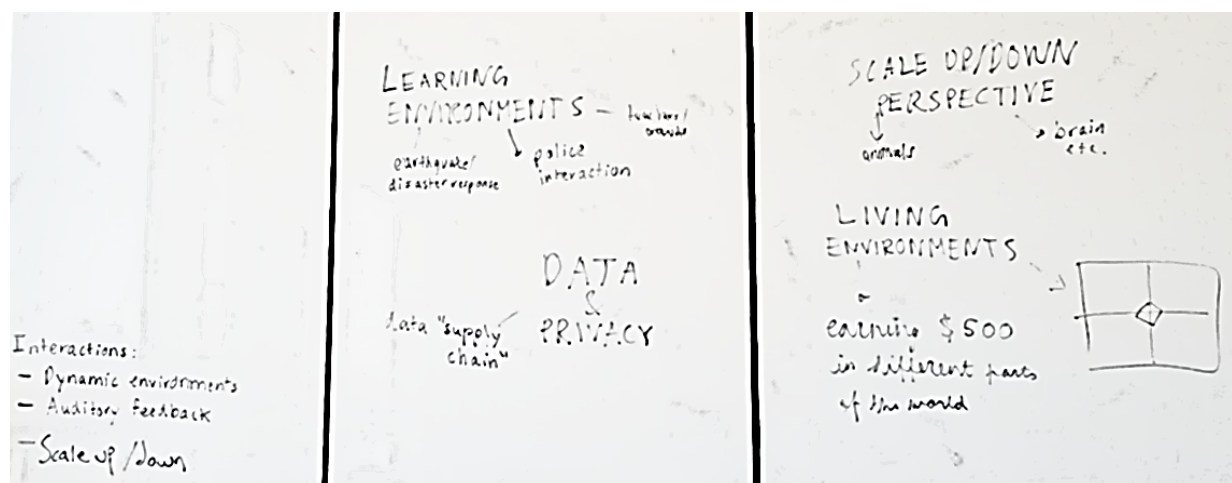 Interactions:
- Dynamic environments
- Auditory feedback
- Scale up/down
LEARNING
ENVIRONMENTS -
earthquake/
disaster response
police
interaction
DATA
&
PRIVACY
data "supply
chain"
SCALE UP/DOWN
PERSPECTIVE
animals
brain
etc.
LIVING
ENVIRONMENTS
earning $500
in different parts
of the world